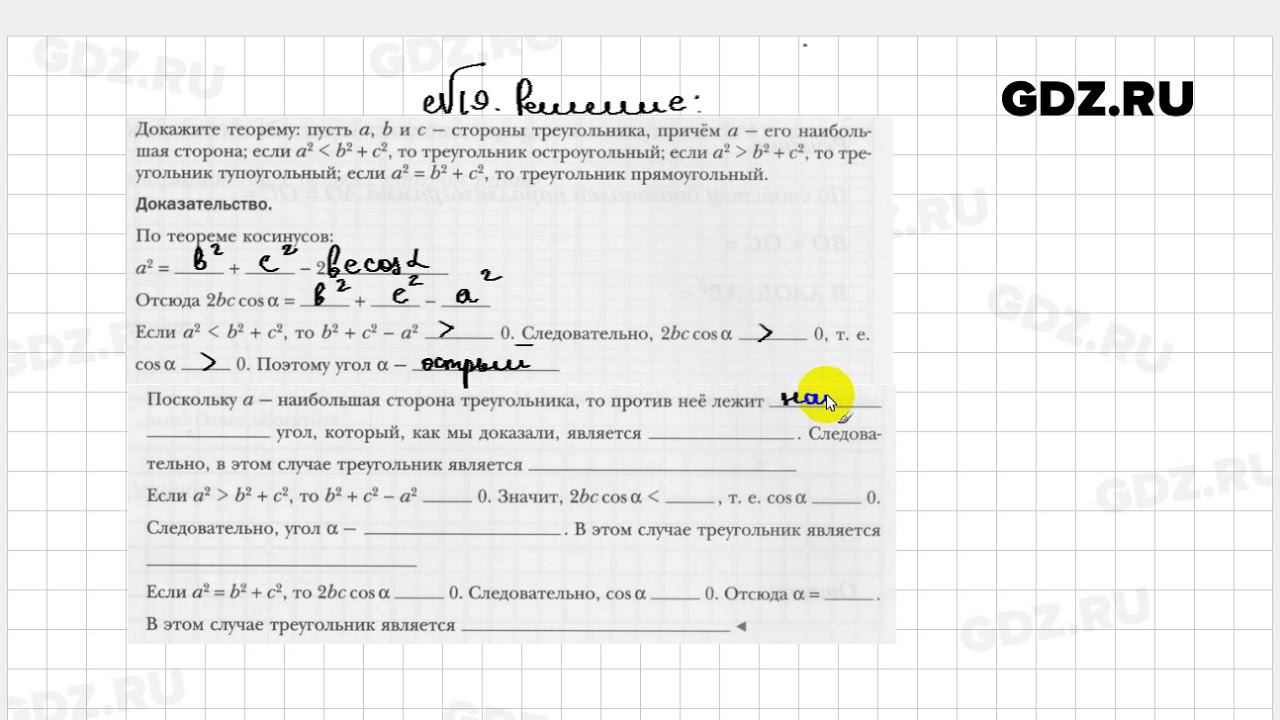 GDZ.RU
GDZ.RU
GDZ.RU
№19. Решение:
Докажите теорему: пусть a, b и c – стороны треугольника, причём a – его наиболь-
шая сторона; если a² < b² + c², то треугольник остроугольный; если a² > b² + c², то тре-
угольник тупоугольный; если a² = b² + c², то треугольник прямоугольный.
Доказательство.
По теореме косинусов:
a² = b² + c² – 2bc cos α
Отсюда 2bc cos α = b² + c² – a²
Если a² < b² + c², то b² + c² – a² > 0. Следовательно, 2bc cos α > 0, т. е.
cos α > 0. Поэтому угол α – острый
Поскольку a – наибольшая сторона треугольника, то против неё лежит на
____ угол, который, как мы доказали, является ____. Следова-
тельно, в этом случае треугольник является ____
Если a² > b² + c², то b² + c² – a² ____ 0. Значит, 2bc cos α < ____, т. е. cos α ____ 0.
Следовательно, угол α – ____. В этом случае треугольник является
____
Если a² = b² + c², то 2bc cos α ____ 0. Следовательно, cos α ____ 0. Отсюда α = ____.
В этом случае треугольник является ____ ◄
GDZ.RU
GDZ.RU
GDZ.RU
GDZ.RU
GDZ.RU